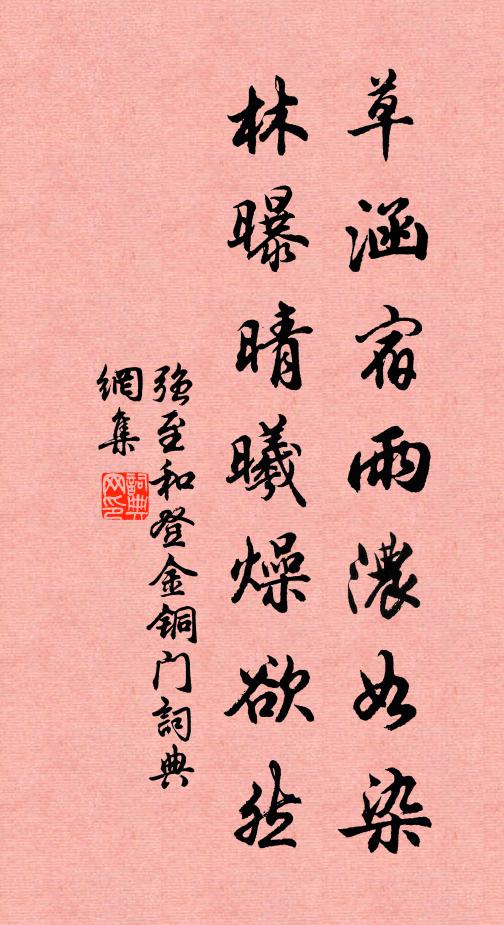 草涵宿雨濃如染
林曝晴曦燥欲然
強至和登金銅门詞典
網集
詞典
网印